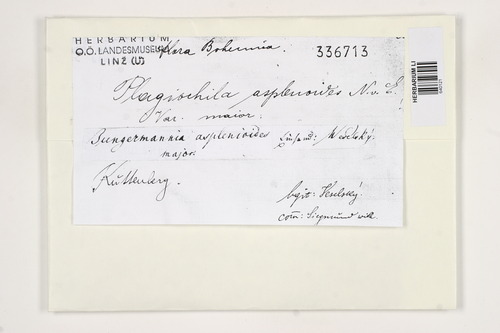 HERBARIUM
O.Ö. LANDESMUSEUM
LINZ (LI)
Flora Bohemia.
336713
Plagiochila asplenoides N. v. E.
Var. maior.
Jungermannia asplenioides Weselský.
major.
Kuttenberg.
legit: Veselský.
com: Siegmund Wilh.
HERBARIUM LI